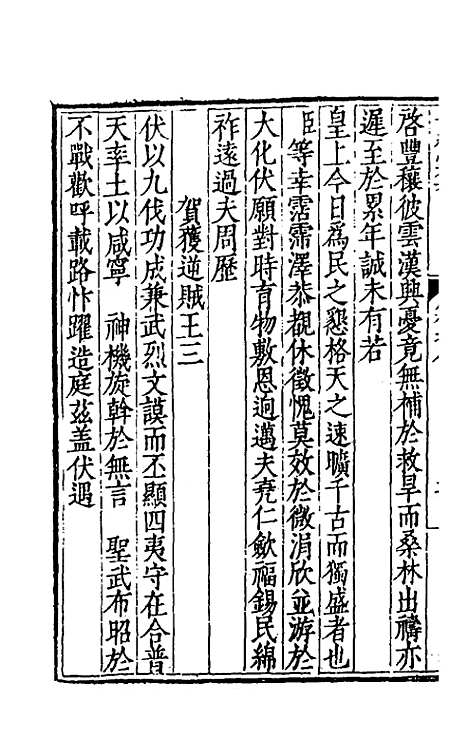 啓豐穰彼雲漢興憂竟無補於救旱而桑林出禱亦
遲至於累年誠未有若
皇上今日爲民之懇格天之速曠千古而獨盛者也
臣等幸霑霈澤恭覩休徵愧莫效於微涓欣並游於
大化伏願對時育物敷恩逈邁夫堯仁斂福錫民綿
祚遠過夫周歷
賀獲逆賊王三
伏以九伐功成兼武烈文謨而丕顯四夷守在合普
天率土以咸寧　神機旋斡於無言　聖武布昭於
不戰歡呼載路忭躍造庭茲盖伏遇